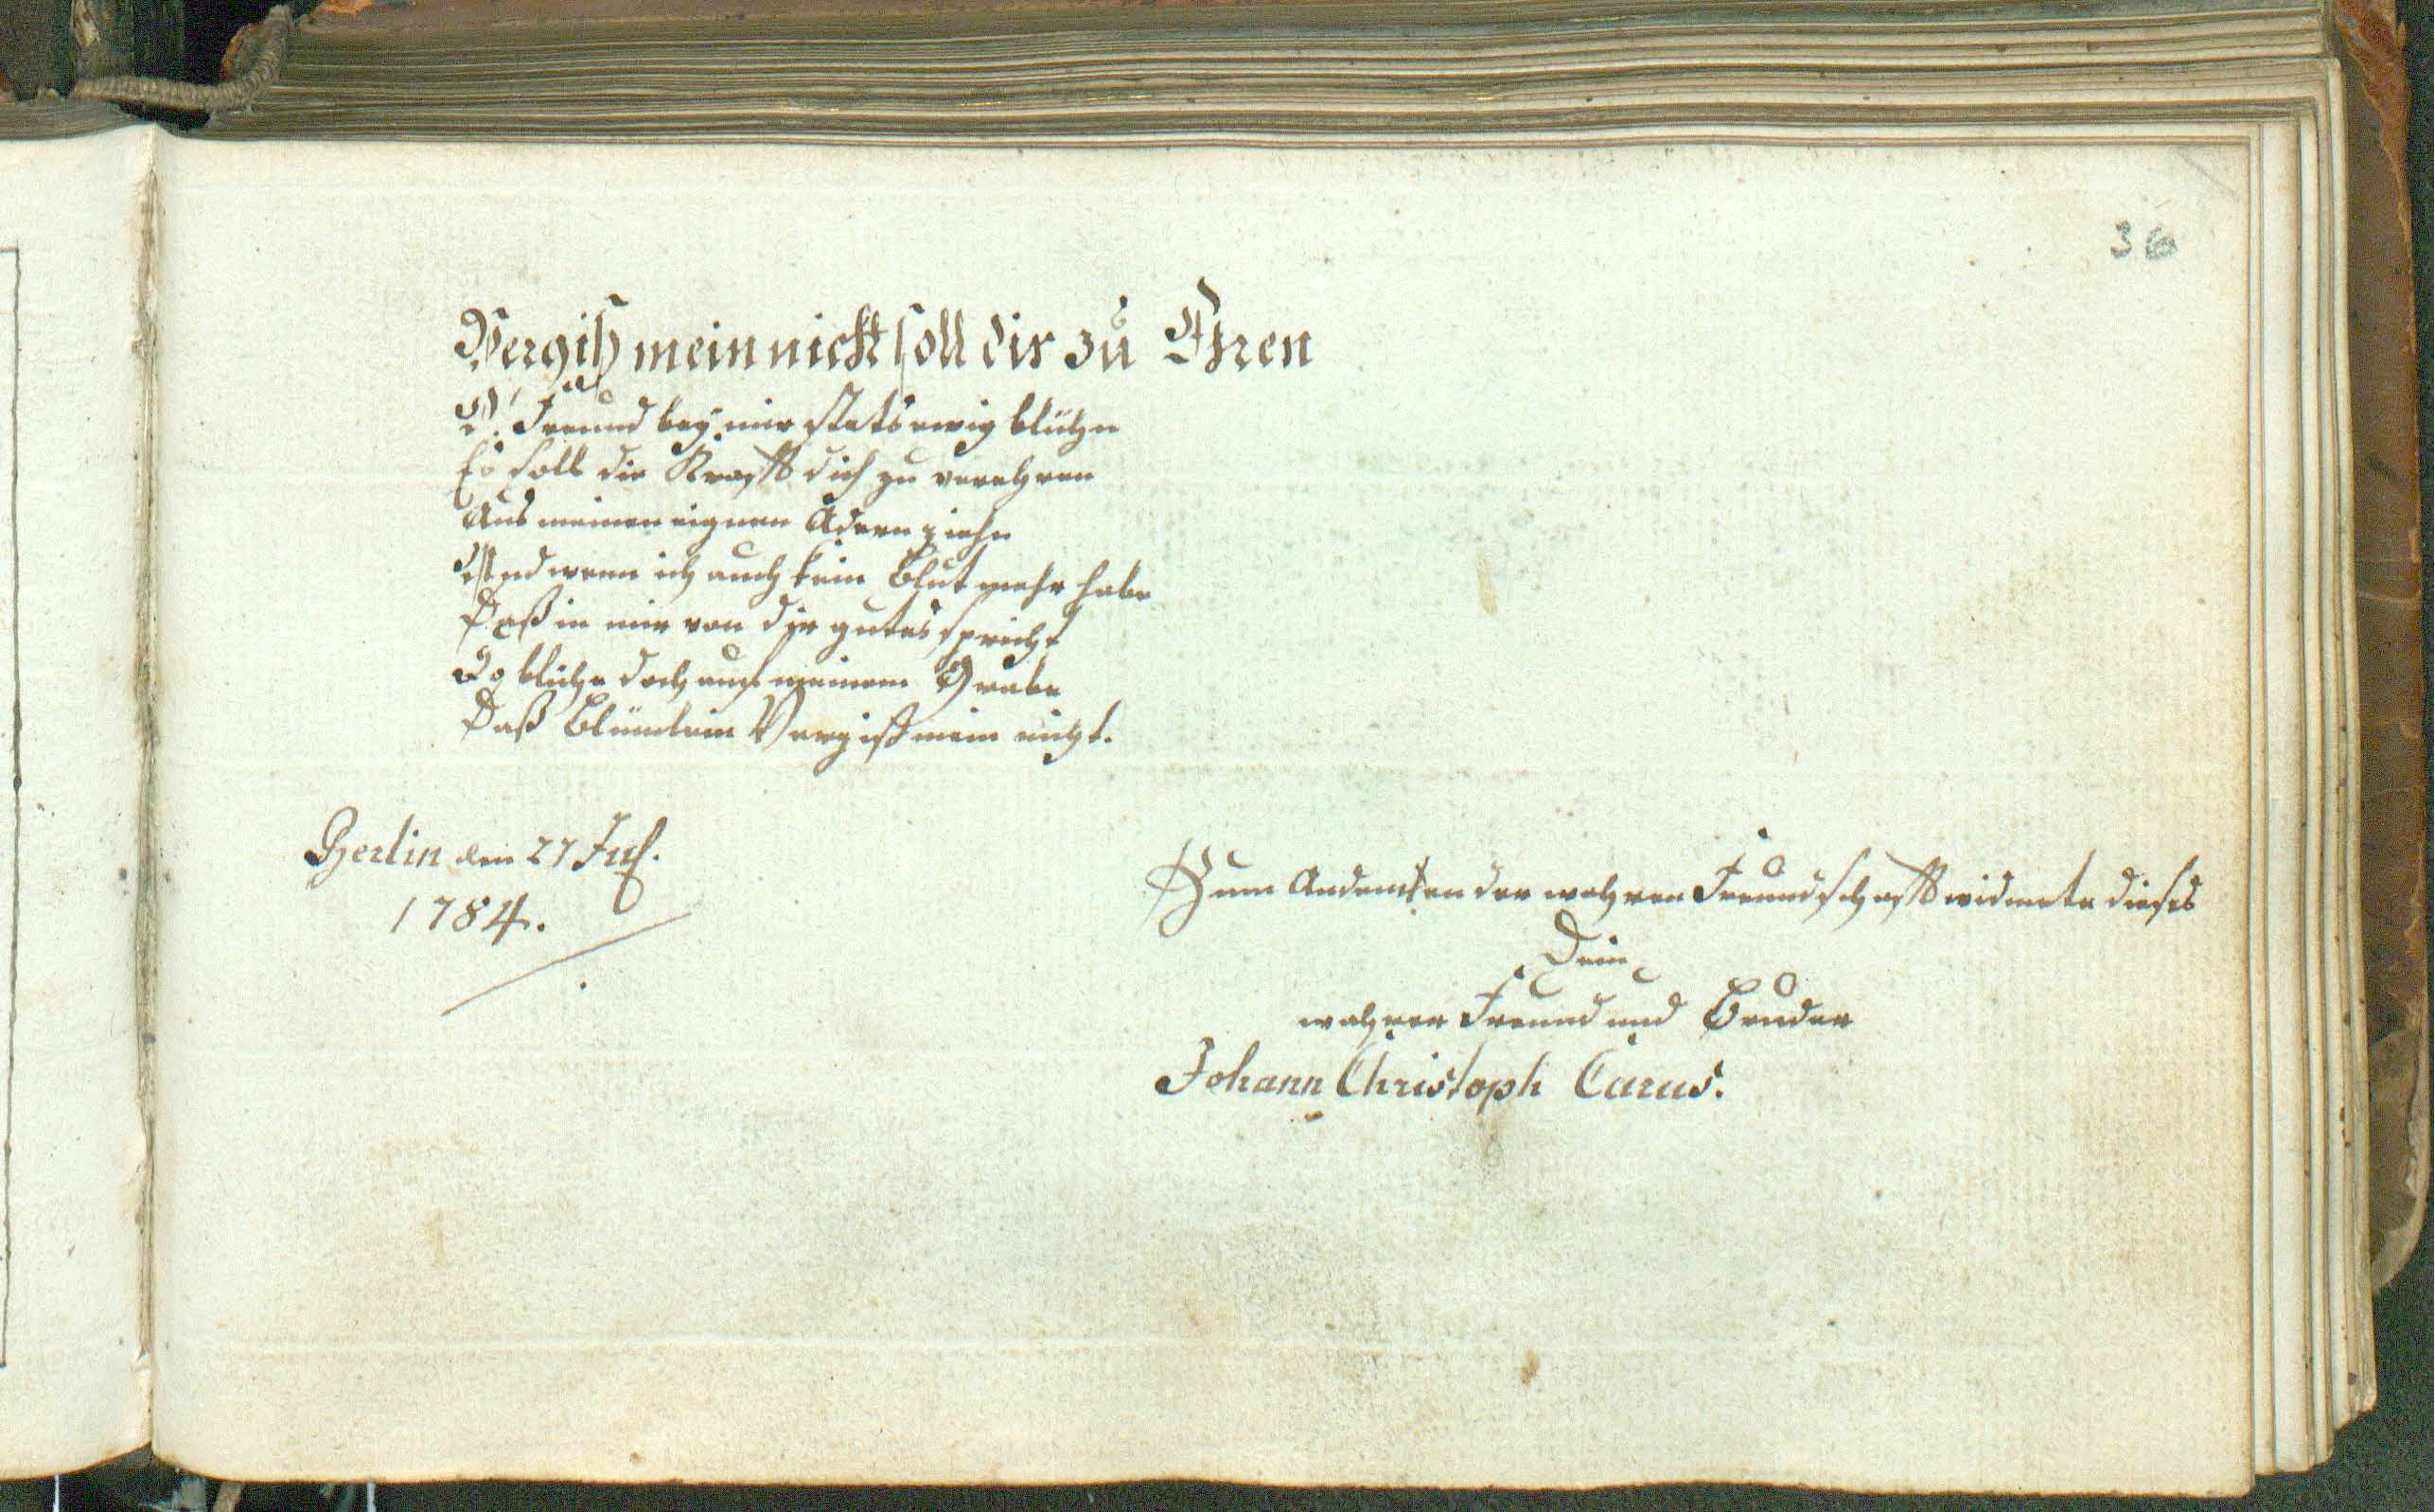 36
Vergiß mein nicht soll dir zu Ehren
O! Freund bey mir stets ewig blühn
Es soll die Krafft dich zu verehren
Aus meinen eignen Adern ziehn
Und wenn ich auch kein Blut mehr habe
Daß in mir von dir gutes spricht
So blühe doch auf meinem Grabe
Daß Blümlein Vergiß mein nicht.
Berlin den 27 Jul.
1784.
Zum Andencken der wahren Freundschafft widmete dieses
Dein
wahrer Freund und Bruder
Johann Christoph Carus.